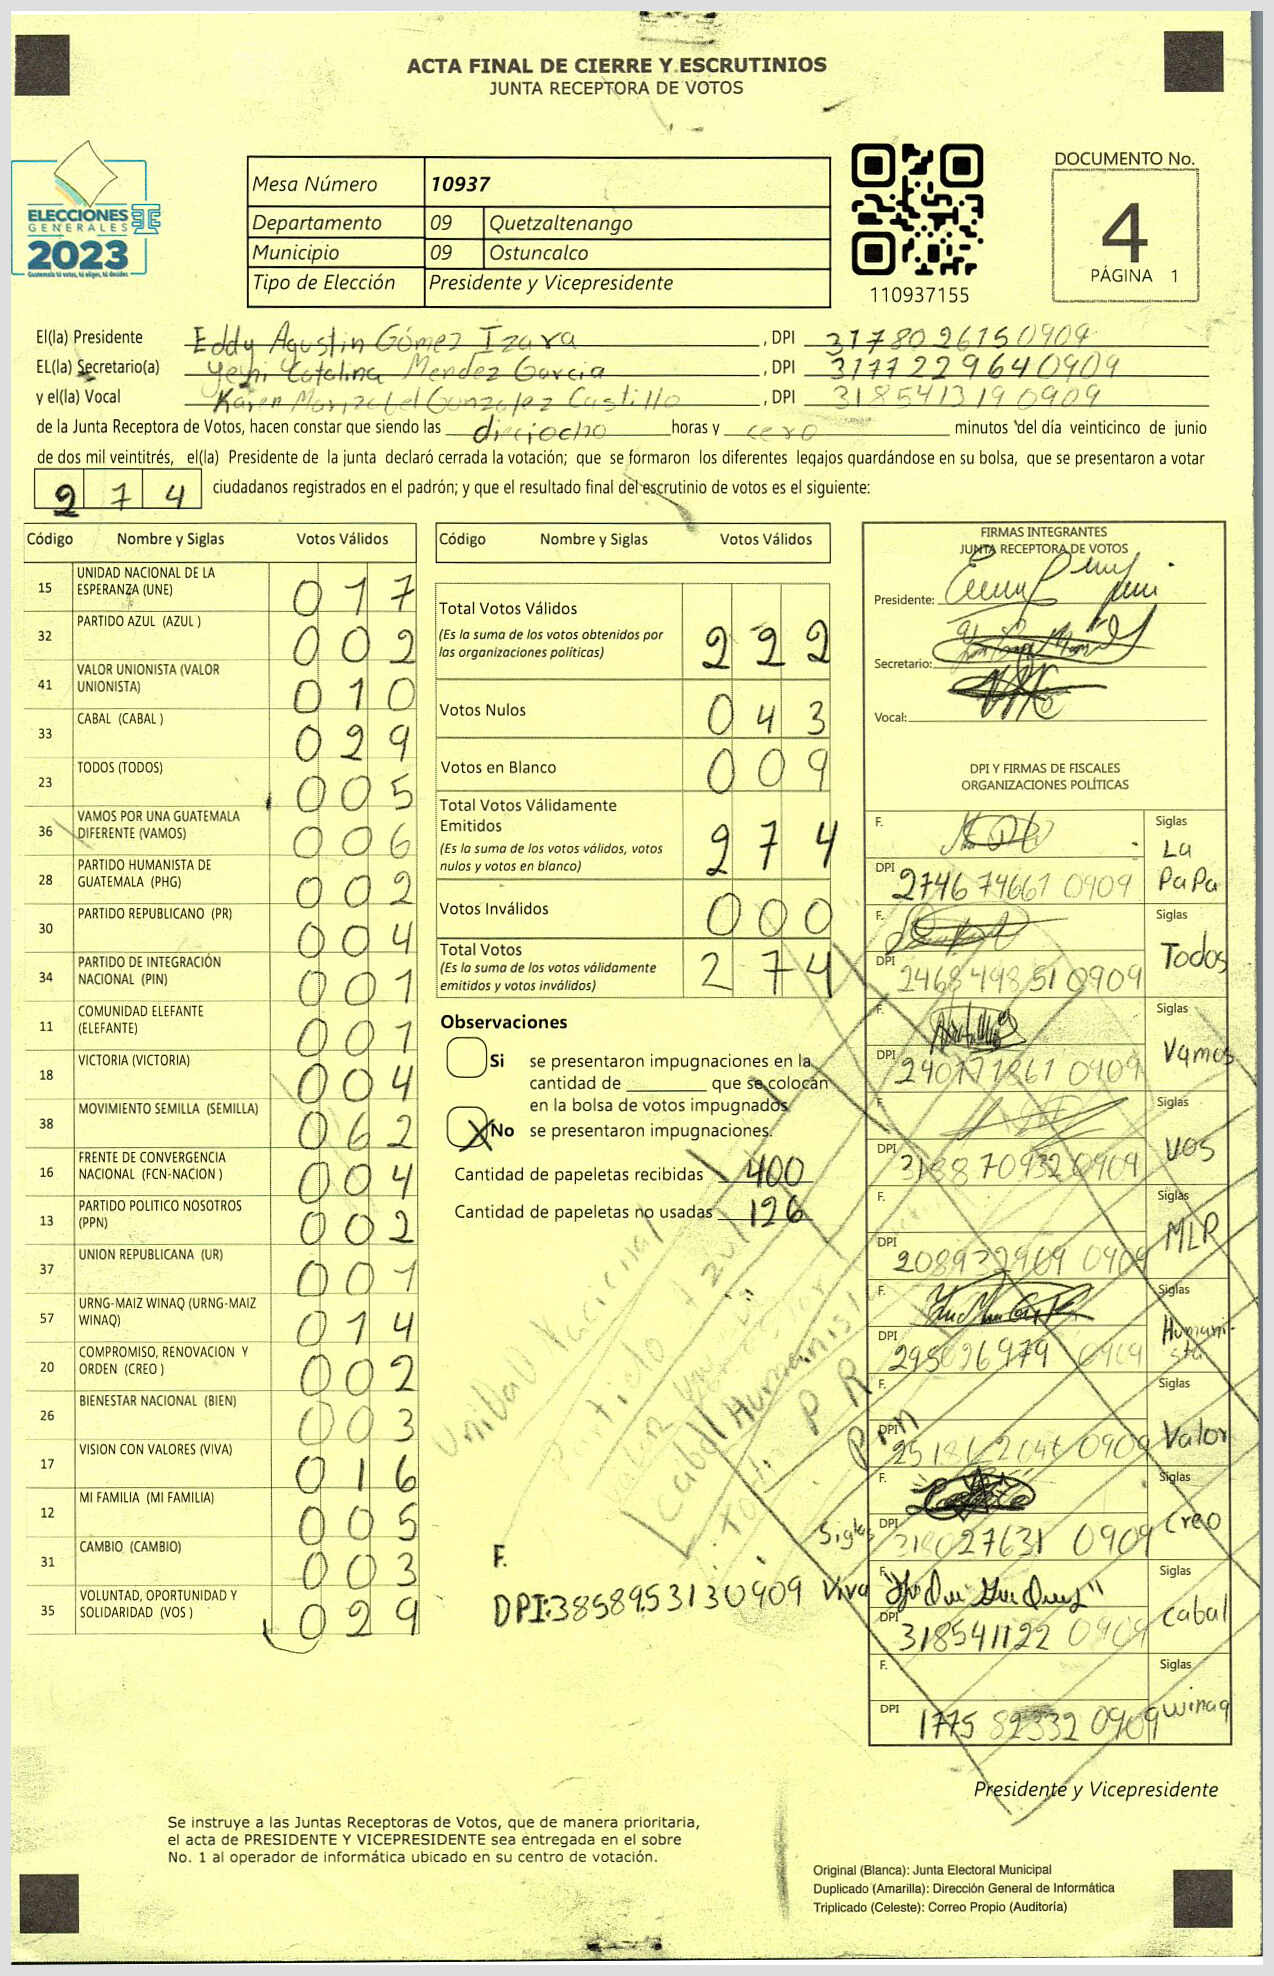 ACTA FINAL DE CIERRE Y ESCRUTINIOS
JUNTA RECEPTORA DE VOTOS
ELECCIONES
GENERALES
2023
Guatemala tú votas, tú eliges, tú decides
Mesa Número 10937
Departamento 09 Quetzaltenango
Municipio 09 Ostuncalco
Tipo de Elección Presidente y Vicepresidente
110937155
DOCUMENTO No.
4
PÁGINA 1
El(la) Presidente Eddy Agustin Gómez Izara, DPI 3178026150909
EL(la) Secretario(a) Yeni Catalina Mendez Garcia, DPI 3177229640909
y el(la) Vocal Karen Marizabel Gonzalez Castillo, DPI 3185413190909
de la Junta Receptora de Votos, hacen constar que siendo las dieciocho horas y cero minutos del día veinticinco de junio
de dos mil veintitrés, el(la) Presidente de la junta declaró cerrada la votación; que se formaron los diferentes legajos quardándose en su bolsa, que se presentaron a votar
274 ciudadanos registrados en el padrón; y que el resultado final del escrutinio de votos es el siguiente:
Código Nombre y Siglas Votos Válidos
15 UNIDAD NACIONAL DE LA ESPERANZA (UNE) 017
32 PARTIDO AZUL (AZUL ) 002
41 VALOR UNIONISTA (VALOR UNIONISTA) 010
33 CABAL (CABAL ) 029
23 TODOS (TODOS) 005
36 VAMOS POR UNA GUATEMALA DIFERENTE (VAMOS) 006
28 PARTIDO HUMANISTA DE GUATEMALA (PHG) 002
30 PARTIDO REPUBLICANO (PR) 004
34 PARTIDO DE INTEGRACIÓN NACIONAL (PIN) 001
11 COMUNIDAD ELEFANTE (ELEFANTE) 001
18 VICTORIA (VICTORIA) 004
38 MOVIMIENTO SEMILLA (SEMILLA) 062
16 FRENTE DE CONVERGENCIA NACIONAL (FCN-NACION ) 004
13 PARTIDO POLITICO NOSOTROS (PPN) 002
37 UNION REPUBLICANA (UR) 001
57 URNG-MAIZ WINAQ (URNG-MAIZ WINAQ) 014
20 COMPROMISO, RENOVACION Y ORDEN (CREO ) 002
26 BIENESTAR NACIONAL (BIEN) 003
17 VISION CON VALORES (VIVA) 016
12 MI FAMILIA (MI FAMILIA) 005
31 CAMBIO (CAMBIO) 003
35 VOLUNTAD, OPORTUNIDAD Y SOLIDARIDAD (VOS ) 029
Código Nombre y Siglas Votos Válidos
Total Votos Válidos 222
(Es la suma de los votos obtenidos por
las organizaciones políticas)
Votos Nulos 043
Votos en Blanco 009
Total Votos Válidamente
Emitidos 274
(Es la suma de los votos válidos, votos
nulos y votos en blanco)
Votos Inválidos 000
Total Votos 274
(Es la suma de los votos válidamente
emitidos y votos inválidos)
Observaciones
Si se presentaron impugnaciones en la
cantidad de ________ que se colocan
en la bolsa de votos impugnados
X No se presentaron impugnaciones.
Cantidad de papeletas recibidas 400
Cantidad de papeletas no usadas 126
Unidad Nacional
Partido Azul
Valor
Cabal Humanis
PR
PPN
Siglas
F.
DPI:3858953130909 Viva
FIRMAS INTEGRANTES
JUNTA RECEPTORA DE VOTOS
Presidente:
Secretario:
Vocal:
DPI Y FIRMAS DE FISCALES
ORGANIZACIONES POLÍTICAS
F. Siglas
DPI 2746746610909 La PaPa
F. Siglas
DPI 2468498510909 Todos
F. Siglas
DPI 0909 Vamos
F. Siglas
DPI 3188709320909 VOS
F. Siglas
DPI 2089329090909 MLP
F. Siglas
DPI 0909 Humanista
F. Siglas
DPI 0909 Valor
F. Siglas
DPI 3180276310909 Creo
F. Siglas
DPI 3185411220909 Cabal
F. Siglas
DPI 1775823320909 winaq
Presidente y Vicepresidente
Se instruye a las Juntas Receptoras de Votos, que de manera prioritaria,
el acta de PRESIDENTE Y VICEPRESIDENTE sea entregada en el sobre
No. 1 al operador de informática ubicado en su centro de votación.
Original (Blanca): Junta Electoral Municipal
Duplicado (Amarilla): Dirección General de Informática
Triplicado (Celeste): Correo Propio (Auditoría)